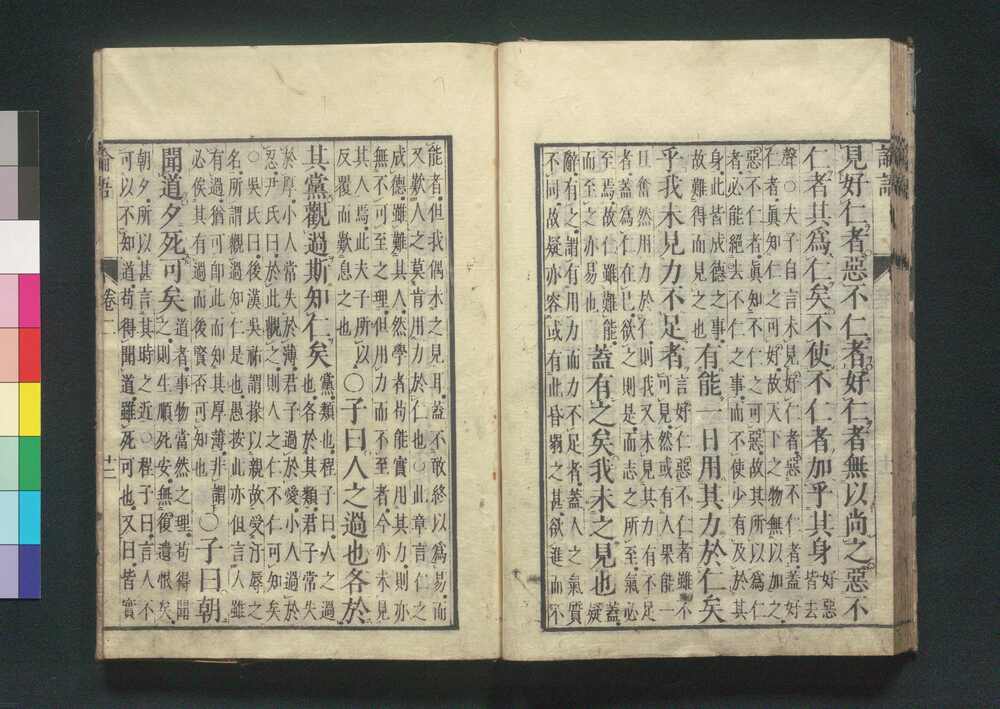 論語
見好仁者惡不仁者好仁者無以尚之惡不
仁者其爲仁矣不使不仁者加乎其身
好惡
皆去
聲○夫子自言未見好仁者惡不仁者蓋好
仁者眞知仁之可好故天下之物無以加之
惡不仁者眞知不仁之可惡故其所以爲仁
者必能絕去不仁之事而不使少有及於其
身此皆成德之事
故難得而見之也
有能一日用其力於仁矣
乎我未見力不足者
言好仁惡不仁者雖不
可見然或有人果能一
旦奮然用力於仁則我又未見其力有不足
者蓋爲仁在己欲之則是而志之所至氣必
至焉故仁雖難能
而至之亦易也
蓋有之矣我未之見也
蓋
疑
辭有之謂有用力而力不足者蓋人之氣質
不同故疑亦容或有此昏弱之甚欲進而不
能者但我偶未之見耳蓋不敢終以爲易而
又歎人之莫肯用力於仁也○此章言仁之
成德雖難其人然學者苟能實用其力則亦
無不可至之理但用力而不至者今亦未見
其人焉此夫子所以
反覆而歎息之也
○子曰人之過也各於
其黨觀過斯知仁矣
黨類也程子曰人之過
也各於其類君子常失
於厚小人常失於薄君子過於愛小人過於
忍尹氏曰於此觀之則人之仁不仁可知矣
○吳氏曰後漢吳祐謂掾以親故受汙辱之
名所謂觀過知仁是也愚按此亦但言人雖
有過猶可即此而知其厚薄非謂
必俟其有過而後賢否可知也
○子曰朝
聞道夕死可矣
道者事物當然之理苟得聞
之則生順死安無復遺恨矣
朝夕所以甚言其時之近○程子曰言人不
可以不知道苟得聞道雖死可也又曰皆實
論語
卷二
十二